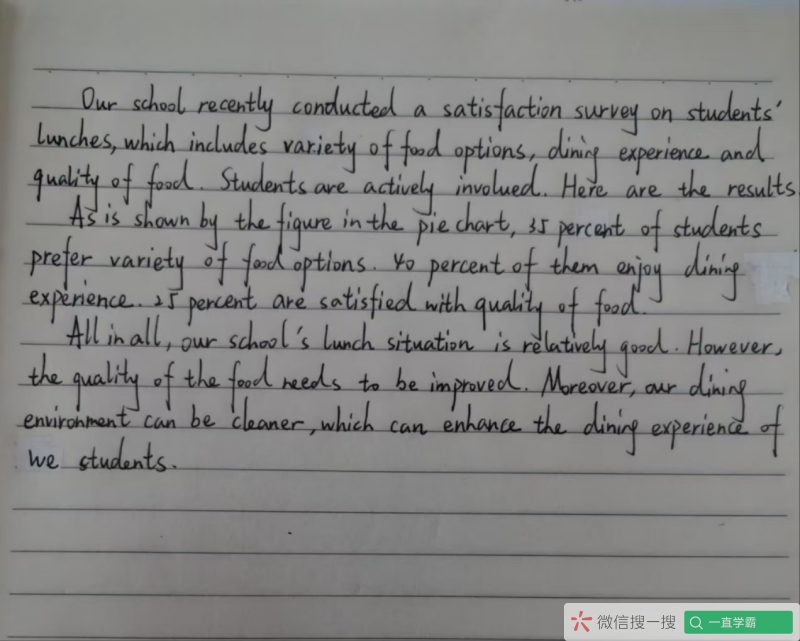 Our school recently conducted a satisfaction survey on students'
lunches, which includes variety of food options, dining experience and
quality of food. Students are actively involued. Here are the results.
As is shown by the figure in the pie chart, 35 percent of students
prefer variety of food options. 40 percent of them enjoy dining
experience. 25 percent are satisfied with quality of food.
All in all, our school's lunch situation is relatively good. However,
the quality of the food needs to be improved. Moreover, our dining
environment can be cleaner, which can enhance the dining experience of
we students.
微信搜一搜 一直学霸